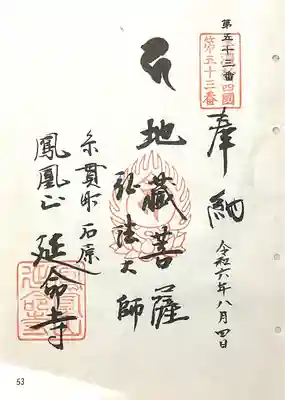 第五十三番
四國
第五十三番
奉納
令和六年八月四日
地藏菩薩
弘法大師
糸貫町石原
鳳凰山
延命寺
53